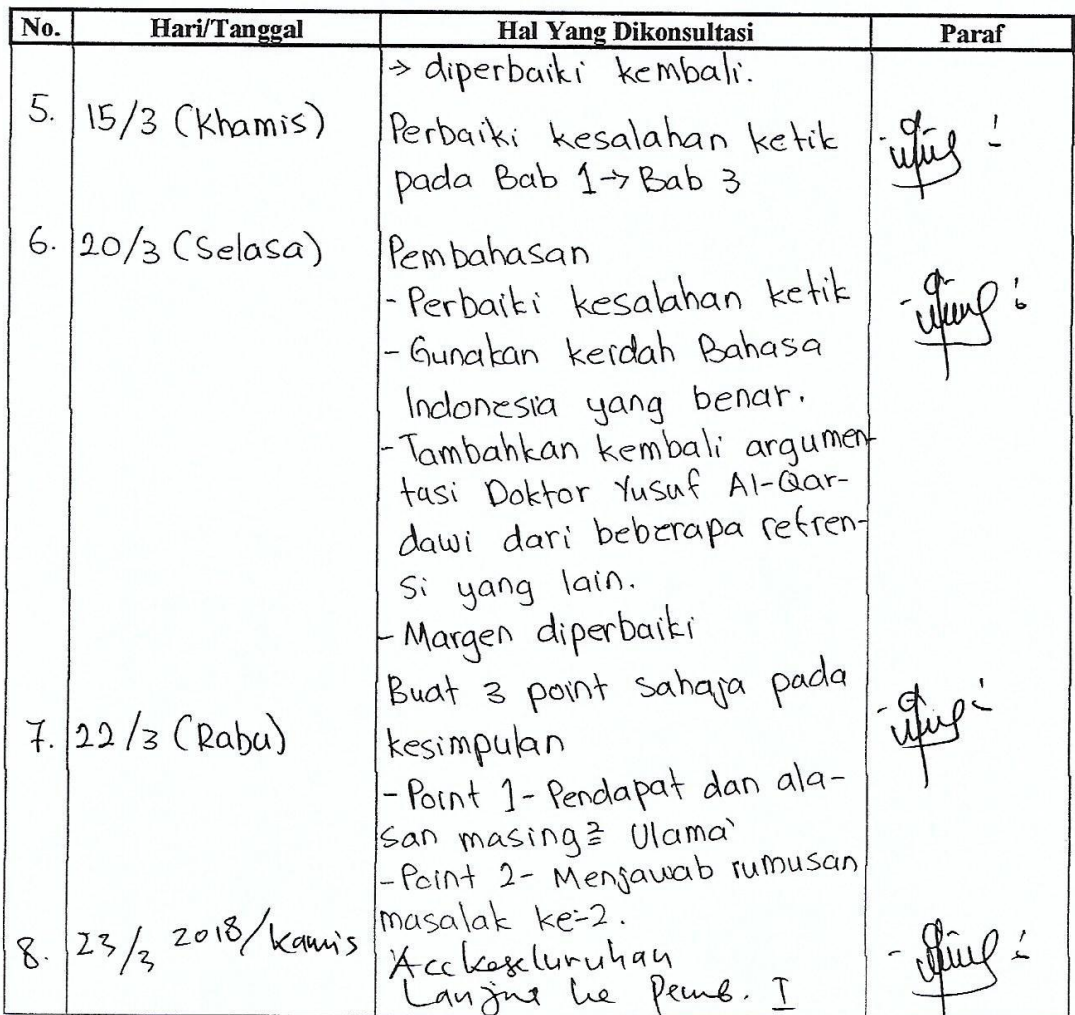 No. Hari/Tanggal Hal Yang Dikonsultasi Paraf
→ diperbaiki kembali.
5. 15/3 (Khamis) Perbaiki kesalahan ketik
pada Bab 1→ Bab 3
6. 20/3 (Selasa) Pembahasan
- Perbaiki kesalahan ketik
- Gunakan keidah Bahasa
Indonesia yang benar.
- Tambahkan kembali argumen-
tasi Doktor Yusuf Al-Qar-
dawi dari beberapa refren-
si yang lain.
- Margen diperbaiki
Buat 3 point sahaja pada
7. 22/3 (Rabu) kesimpulan
- Point 1- Pendapat dan ala-
san masing2 Ulama`
- Point 2- Menjawab rumusan
masalak ke-2.
8. 23/3 2018/kamis Acc keseluruhan
Lanjut ke Pemb. I